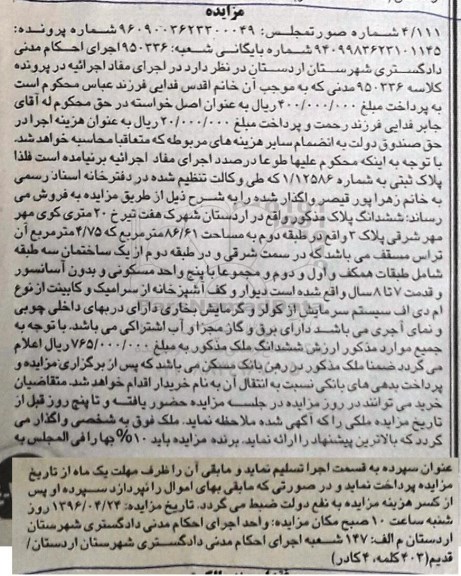 مزایده
۴/۱۱۱ شماره صورتمجلس: ۹۶۰۹۰۰۳۶۲۳۳۰۰۰۴۹ شماره پرونده:
۹۴۰۹۹۸۳۶۲۳۱۰۱۱۴۵ شماره بایگانی شعبه: ۹۵۰۳۳۶ اجرای احکام مدنی
دادگستری شهرستان اردستان در نظر دارد در اجرای مفاد اجرائیه در پرونده
کلاسه ۹۵۰۳۳۶ مدنی که به موجب آن خانم اقدس فدایی فرزند عباس محکوم است
به پرداخت مبلغ ۴۰۰/۰۰۰/۰۰۰ ریال به عنوان اصل خواسته در حق محکوم له آقای
جابر فدایی فرزند رحمت و پرداخت مبلغ ۲۰/۰۰۰/۰۰۰ ریال به عنوان هزینه اجرا در
حق صندوق دولت به انضمام سایر هزینه های مربوطه که متعاقبا محاسبه خواهد شد.
با توجه به اینکه محکوم علیها طوعا درصدد اجرای مفاد اجرائیه برنیامده است فلذا
پلاک ثبتی به شماره ۱/۱۲۵۸۶ که طی وکالت تنظیم شده در دفترخانه اسناد رسمی
به خانم زهرا پور قیصر واگذار شده را به شرح ذیل از طریق مزایده به فروش می
رساند: ششدانگ پلاک مذکور واقع در اردستان شهرک هفت تیر خ ۲۰ متری کوی مهر
مهر شرقی پلاک ۳ واقع در طبقه دوم به مساحت ۸۶/۶۱ مترمربع که ۴/۷۵ مترمربع آن
تراس مسقف می باشد که در سمت شرقی و در طبقه دوم از یک ساختمان سه طبقه
شامل طبقات همکف و اول و دوم و مجموعا با پنج واحد مسکونی و بدون آسانسور
و قدمت ۷ تا ۸ سال واقع شده است دیوار و کف آشپزخانه از سرامیک و کابینت از نوع
ام دی اف سیستم سرمایش از کولر و گرمایش بخاری دارای دربهای داخلی چوبی
و نمای آجری می باشد دارای برق و گاز مجزا و آب اشتراکی می باشد. با توجه به
جمیع موارد مذکور ارزش ششدانگ ملک مذکور به مبلغ ۷۶۵/۰۰۰/۰۰۰ ریال اعلام
می گردد ضمنا ملک مذکور در رهن بانک مسکن می باشد که پس از برگزاری مزایده و
پرداخت بدهی های بانکی نسبت به انتقال آن به نام خریدار اقدام خواهد شد. متقاضیان
خرید می توانند در روز مزایده در جلسه مزایده حضور یافته و تا پنج روز قبل از
تاریخ مزایده ملکی را که آگهی شده ملاحظه نماید. ملک فوق به شخصی واگذار می
گردد که بالاترین پیشنهاد را ارائه نماید. برنده مزایده باید ۱۰% بها را فی المجلس به
عنوان سپرده به قسمت اجرا تسلیم نماید و مابقی آن را ظرف مهلت یک ماه از تاریخ
مزایده پرداخت نماید و در صورتی که مابقی بهای اموال را نپردازد سپرده او پس
از کسر هزینه مزایده به نفع دولت ضبط می گردد. تاریخ مزایده: ۱۳۹۶/۰۴/۲۴ روز
شنبه ساعت ۱۰ صبح مکان مزایده: واحد اجرای احکام مدنی دادگستری شهرستان
اردستان م الف: ۱۴۷ شعبه اجرای احکام مدنی دادگستری شهرستان اردستان/
قدیم(۴۰۳ کلمه، ۴ کادر)